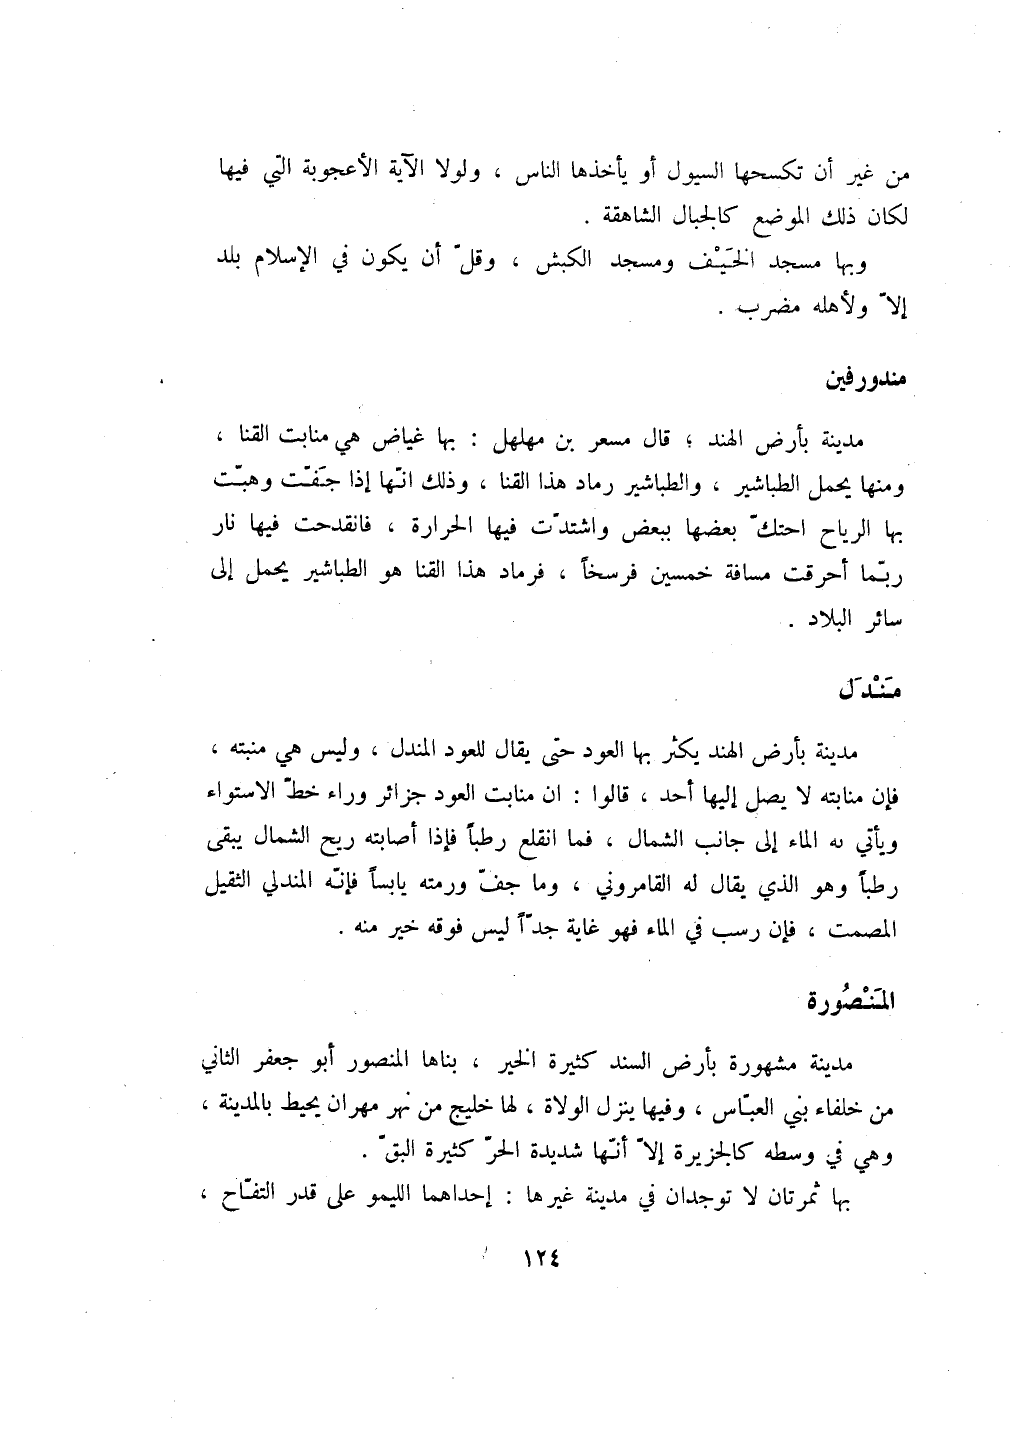 من غير أن تكسحها السيول أو يأخذها الناس ، ولولا الآية الأعجوبة التي فيها
لكان ذلك الموضع كالجبال الشاهقة .
وبها مسجد الخَيْف ومسجد الكبش ، وقلّ أن يكون في الإسلام بلد
إلاّ ولأهله مضرب .
مندورفين
مدينة بأرض الهند ؛ قال مسعر بن مهلهل : بها غياض هي منابت القنا ،
ومنها يحمل الطباشير ، والطباشير رماد هذا القنا ، وذلك انّها إذا جَفّت وهبّت
بها الرياح احتكّ بعضها ببعض واشتدّت فيها الحرارة ، فانقدحت فيها نار
ربّما أحرقت مسافة خمسين فرسخاً ، فرماد هذا القنا هو الطباشير يحمل إلى
سائر البلاد .
مَنْدَل
مدينة بأرض الهند يكثر بها العود حتّى يقال للعود المندل ، وليس هي منبته ،
فإن منابته لا يصل إليها أحد ، قالوا : ان منابت العود جزائر وراء خطّ الاستواء
ويأتي به الماء إلى جانب الشمال ، فما انقلع رطباً فإذا أصابته ريح الشمال يبقى
رطباً وهو الذي يقال له القامروني ، وما جفّ ورمته يابساً فإنّه المندلي الثقيل
المصمت ، فإن رسب في الماء فهو غاية جدّاً ليس فوقه خير منه .
المَنْصُورة
مدينة مشهورة بأرض السند كثيرة الخير ، بناها المنصور أبو جعفر الثاني
من خلفاء بني العبّاس ، وفيها ينزل الولاة ، لها خليج من نهر مهران يحيط بالمدينة ،
وهي في وسطه كالجزيرة إلاّ أنّها شديدة الحرّ كثيرة البقّ .
بها ثمرتان لا توجدان في مدينة غيرها : إحداهما الليمو على قدر التفّاح ،
١٢٤